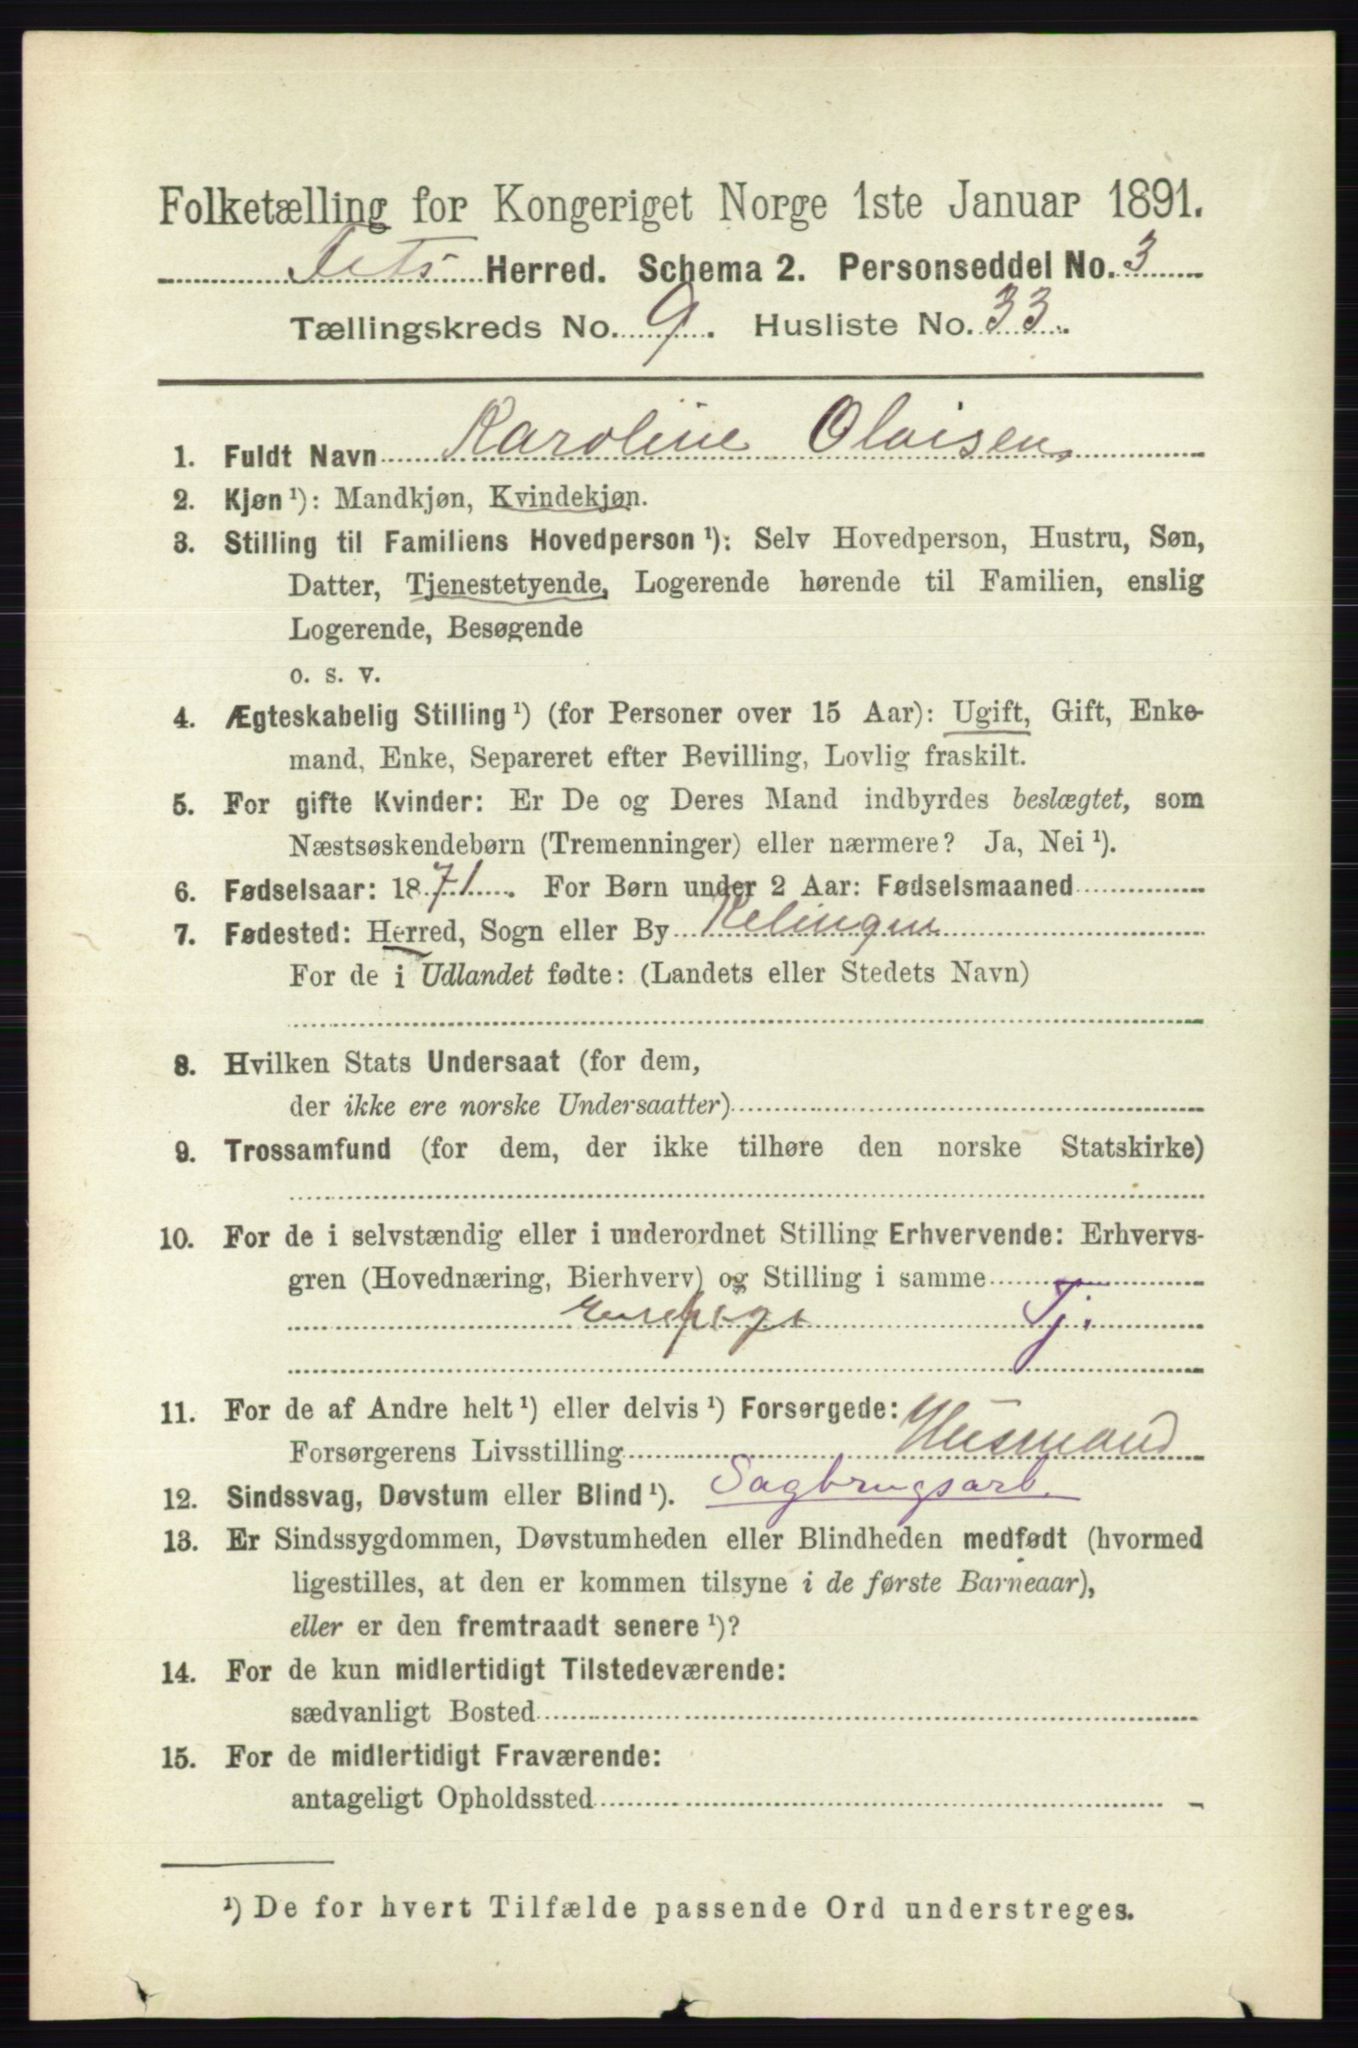 Folketælling for Kongeriget Norge 1ste Januar 1891.
Fets Herred. Schema 2. Personseddel No. 3
Tællingskreds No. 9. Husliste No. 33.
1. Fuldt Navn Karoline Olaisen
2. Kjøn ¹): Mandkjøn, Kvindekjøn.
3. Stilling til Familiens Hovedperson ¹): Selv Hovedperson, Hustru, Søn,
Datter, Tjenestetyende, Logerende hørende til Familien, enslig
Logerende, Besøgende
o. s. v.
4. Ægteskabelig Stilling ¹) (for Personer over 15 Aar): Ugift, Gift, Enke-
mand, Enke, Separeret efter Bevilling, Lovlig fraskilt.
5. For gifte Kvinder: Er De og Deres Mand indbyrdes beslægtet, som
Næstsøskendebørn (Tremenninger) eller nærmere? Ja, Nei ¹).
6. Fødselsaar: 1871. For Børn under 2 Aar: Fødselsmaaned
7. Fødested: Herred, Sogn eller By Relingen
For de i Udlandet fødte: (Landets eller Stedets Navn)
8. Hvilken Stats Undersaat (for dem,
der ikke ere norske Undersaatter)
9. Trossamfund (for dem, der ikke tilhøre den norske Statskirke)
10. For de i selvstændig eller i underordnet Stilling Erhvervende: Erhvervs-
gren (Hovednæring, Bierhverv) og Stilling i samme
Tj.
11. For de af Andre helt ¹) eller delvis ¹) Forsørgede:
Forsørgerens Livsstilling Husmand
12. Sindssvag, Døvstum eller Blind ¹). Sagbrugsarb.
13. Er Sindssygdommen, Døvstumheden eller Blindheden medfødt (hvormed
ligestilles, at den er kommen tilsyne i de første Barneaar),
eller er den fremtraadt senere ¹)?
14. For de kun midlertidigt Tilstedeværende:
sædvanligt Bosted
15. For de midlertidigt Fraværende:
antageligt Opholdssted
¹) De for hvert Tilfælde passende Ord understreges.